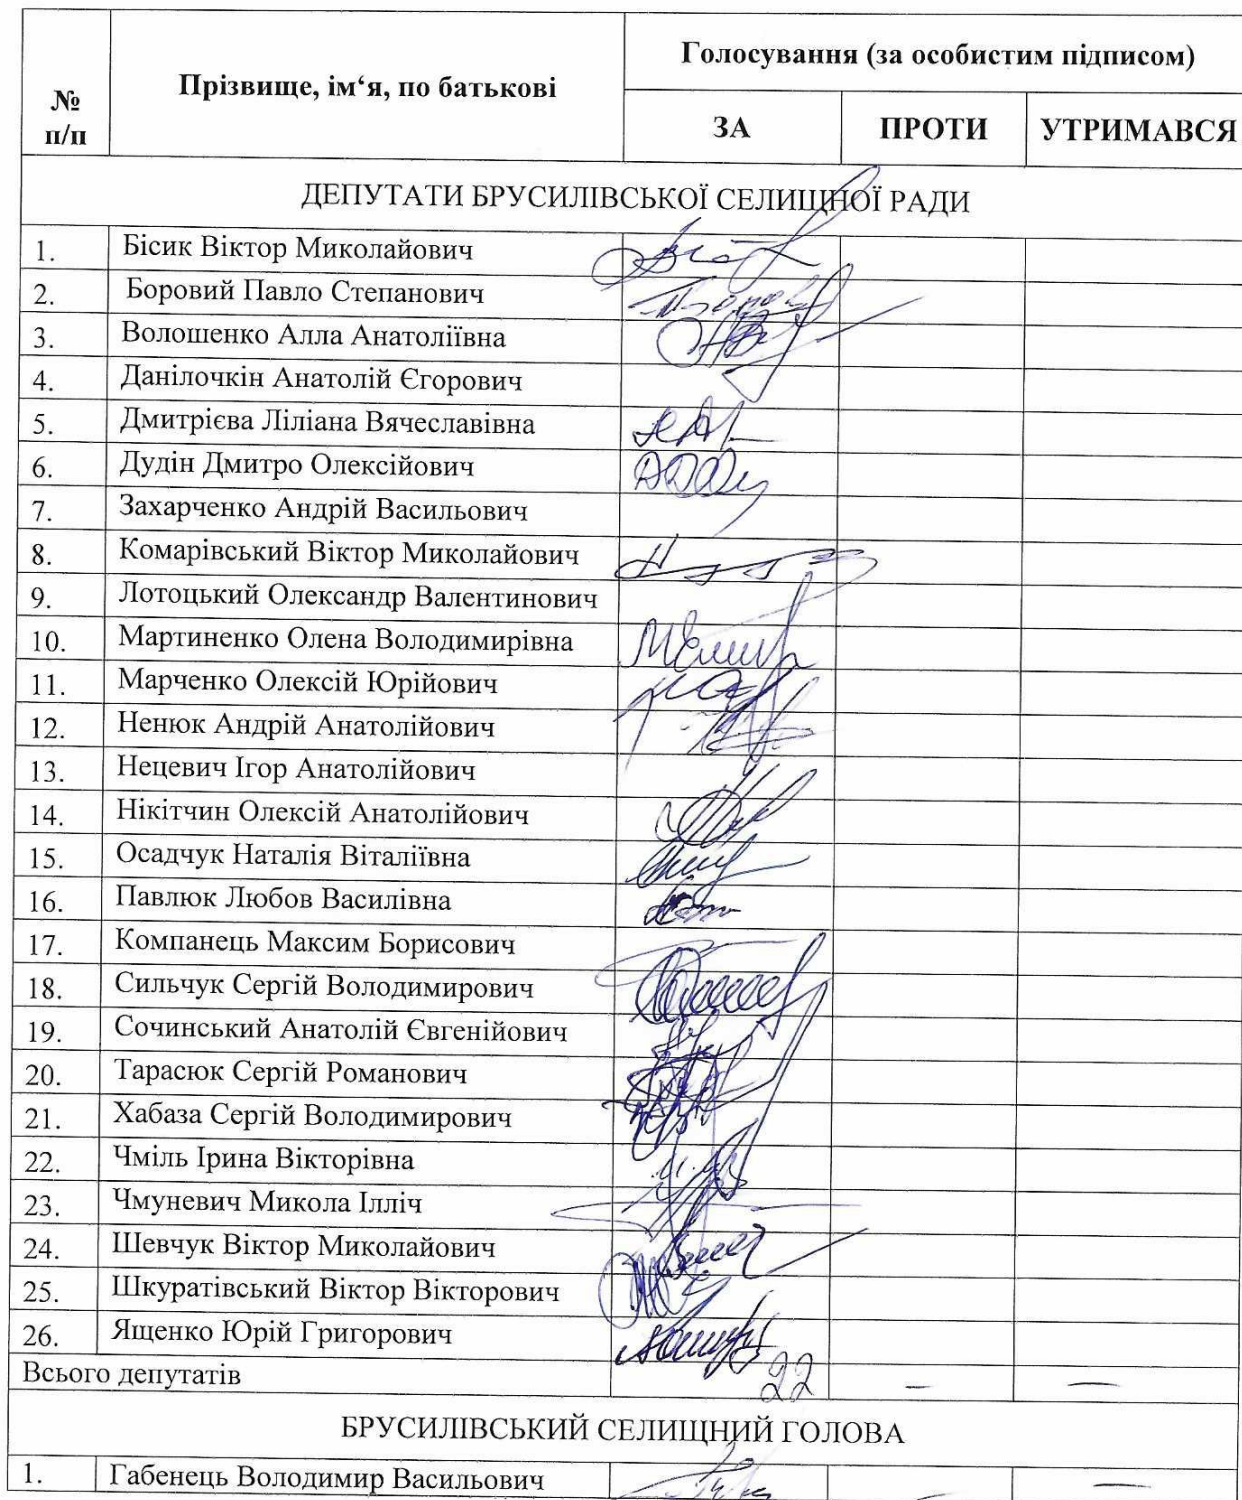 № п/п
Прізвище, ім‘я, по батькові
Голосування (за особистим підписом)
ЗА ПРОТИ УТРИМАВСЯ
ДЕПУТАТИ БРУСИЛІВСЬКОЇ СЕЛИЩНОЇ РАДИ
1. Бісик Віктор Миколайович
2. Боровий Павло Степанович
3. Волошенко Алла Анатоліївна
4. Данілочкін Анатолій Єгорович
5. Дмитрієва Ліліана Вячеславівна
6. Дудін Дмитро Олексійович
7. Захарченко Андрій Васильович
8. Комарівський Віктор Миколайович
9. Лотоцький Олександр Валентинович
10. Мартиненко Олена Володимирівна
11. Марченко Олексій Юрійович
12. Ненюк Андрій Анатолійович
13. Нецевич Ігор Анатолійович
14. Нікітчин Олексій Анатолійович
15. Осадчук Наталія Віталіївна
16. Павлюк Любов Василівна
17. Компанець Максим Борисович
18. Сильчук Сергій Володимирович
19. Сочинський Анатолій Євгенійович
20. Тарасюк Сергій Романович
21. Хабаза Сергій Володимирович
22. Чміль Ірина Вікторівна
23. Чмуневич Микола Ілліч
24. Шевчук Віктор Миколайович
25. Шкуратівський Віктор Вікторович
26. Ященко Юрій Григорович
Всього депутатів 22 – –
БРУСИЛІВСЬКИЙ СЕЛИЩНИЙ ГОЛОВА
1. Габенець Володимир Васильович – –